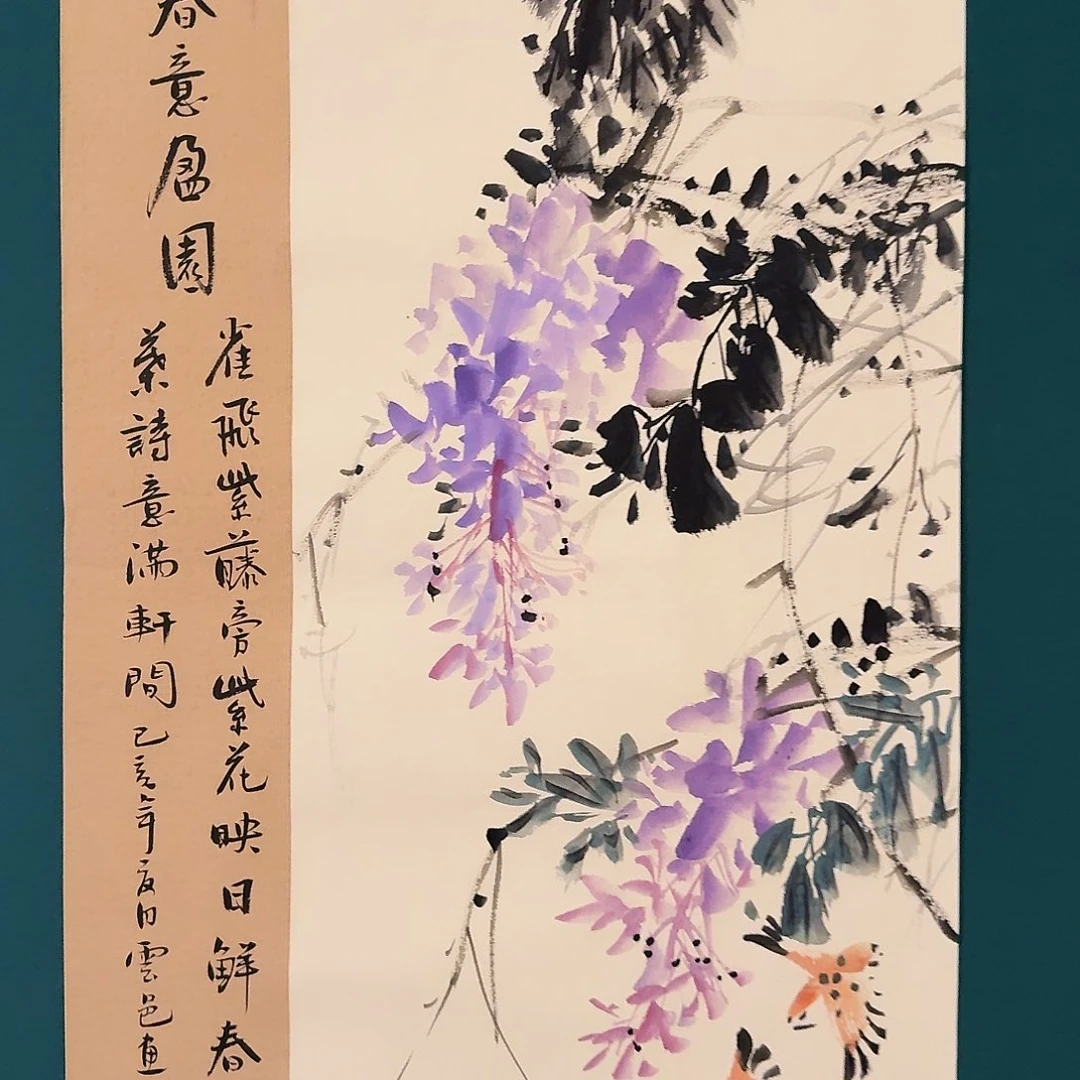 春意盈園
雀飛紫藤旁紫花映日鮮春
葉詩意滿軒間己亥年夏日雲邑畫